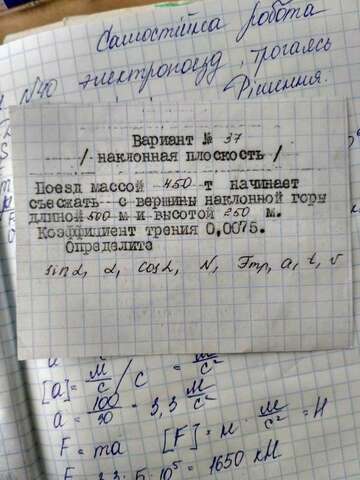 Самостійна робота
№40 электропоезд, трогаясь
Рішення.
Вариант № 37
/ наклонная плоскость /
Поезд массой 450 т начинает
съезжать с вершины наклонной горы
длиной 500 м и высотой 250 м.
Коэффициент трения 0,0075.
Определите
sin α, α, cos α, N, Fтр, a, t, v
[a] = м/с / с = м/с²
a = 100/30 = 3,3 м/с²
F = ma [F] = кг · м/с² = Н
= 1650 кН